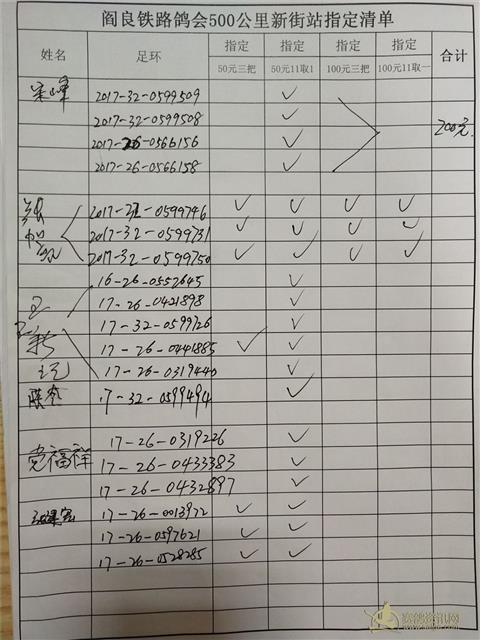 阎良铁路鸽会500公里新街站指定清单
姓名 足环 指定 指定 指定 指定 合计
50元三把 50元11取1 100元三把 100元11取一
宋峰 2017-32-0599509 ✓
2017-32-0599508 ✓ 200元.
2017-26-0566156 ✓
2017-26-0566158 ✓
2017-32-0599746 ✓ ✓ ✓ ✓
2017-32-0599731 ✓ ✓ ✓ ✓
2017-32-0599750 ✓ ✓ ✓ ✓
16-26-0552645 ✓
17-26-0421898 ✓
17-32-0599726 ✓
17-26-0441885 ✓ ✓
17-26-0319440 ✓
17-32-0599494 ✓
17-26-0319226 ✓
党福祥 17-26-0433383 ✓
17-26-0432897 ✓
17-26-0013972 ✓ ✓
17-26-0597621 ✓ ✓
17-26-0528285 ✓ ✓
赛鸽资讯网